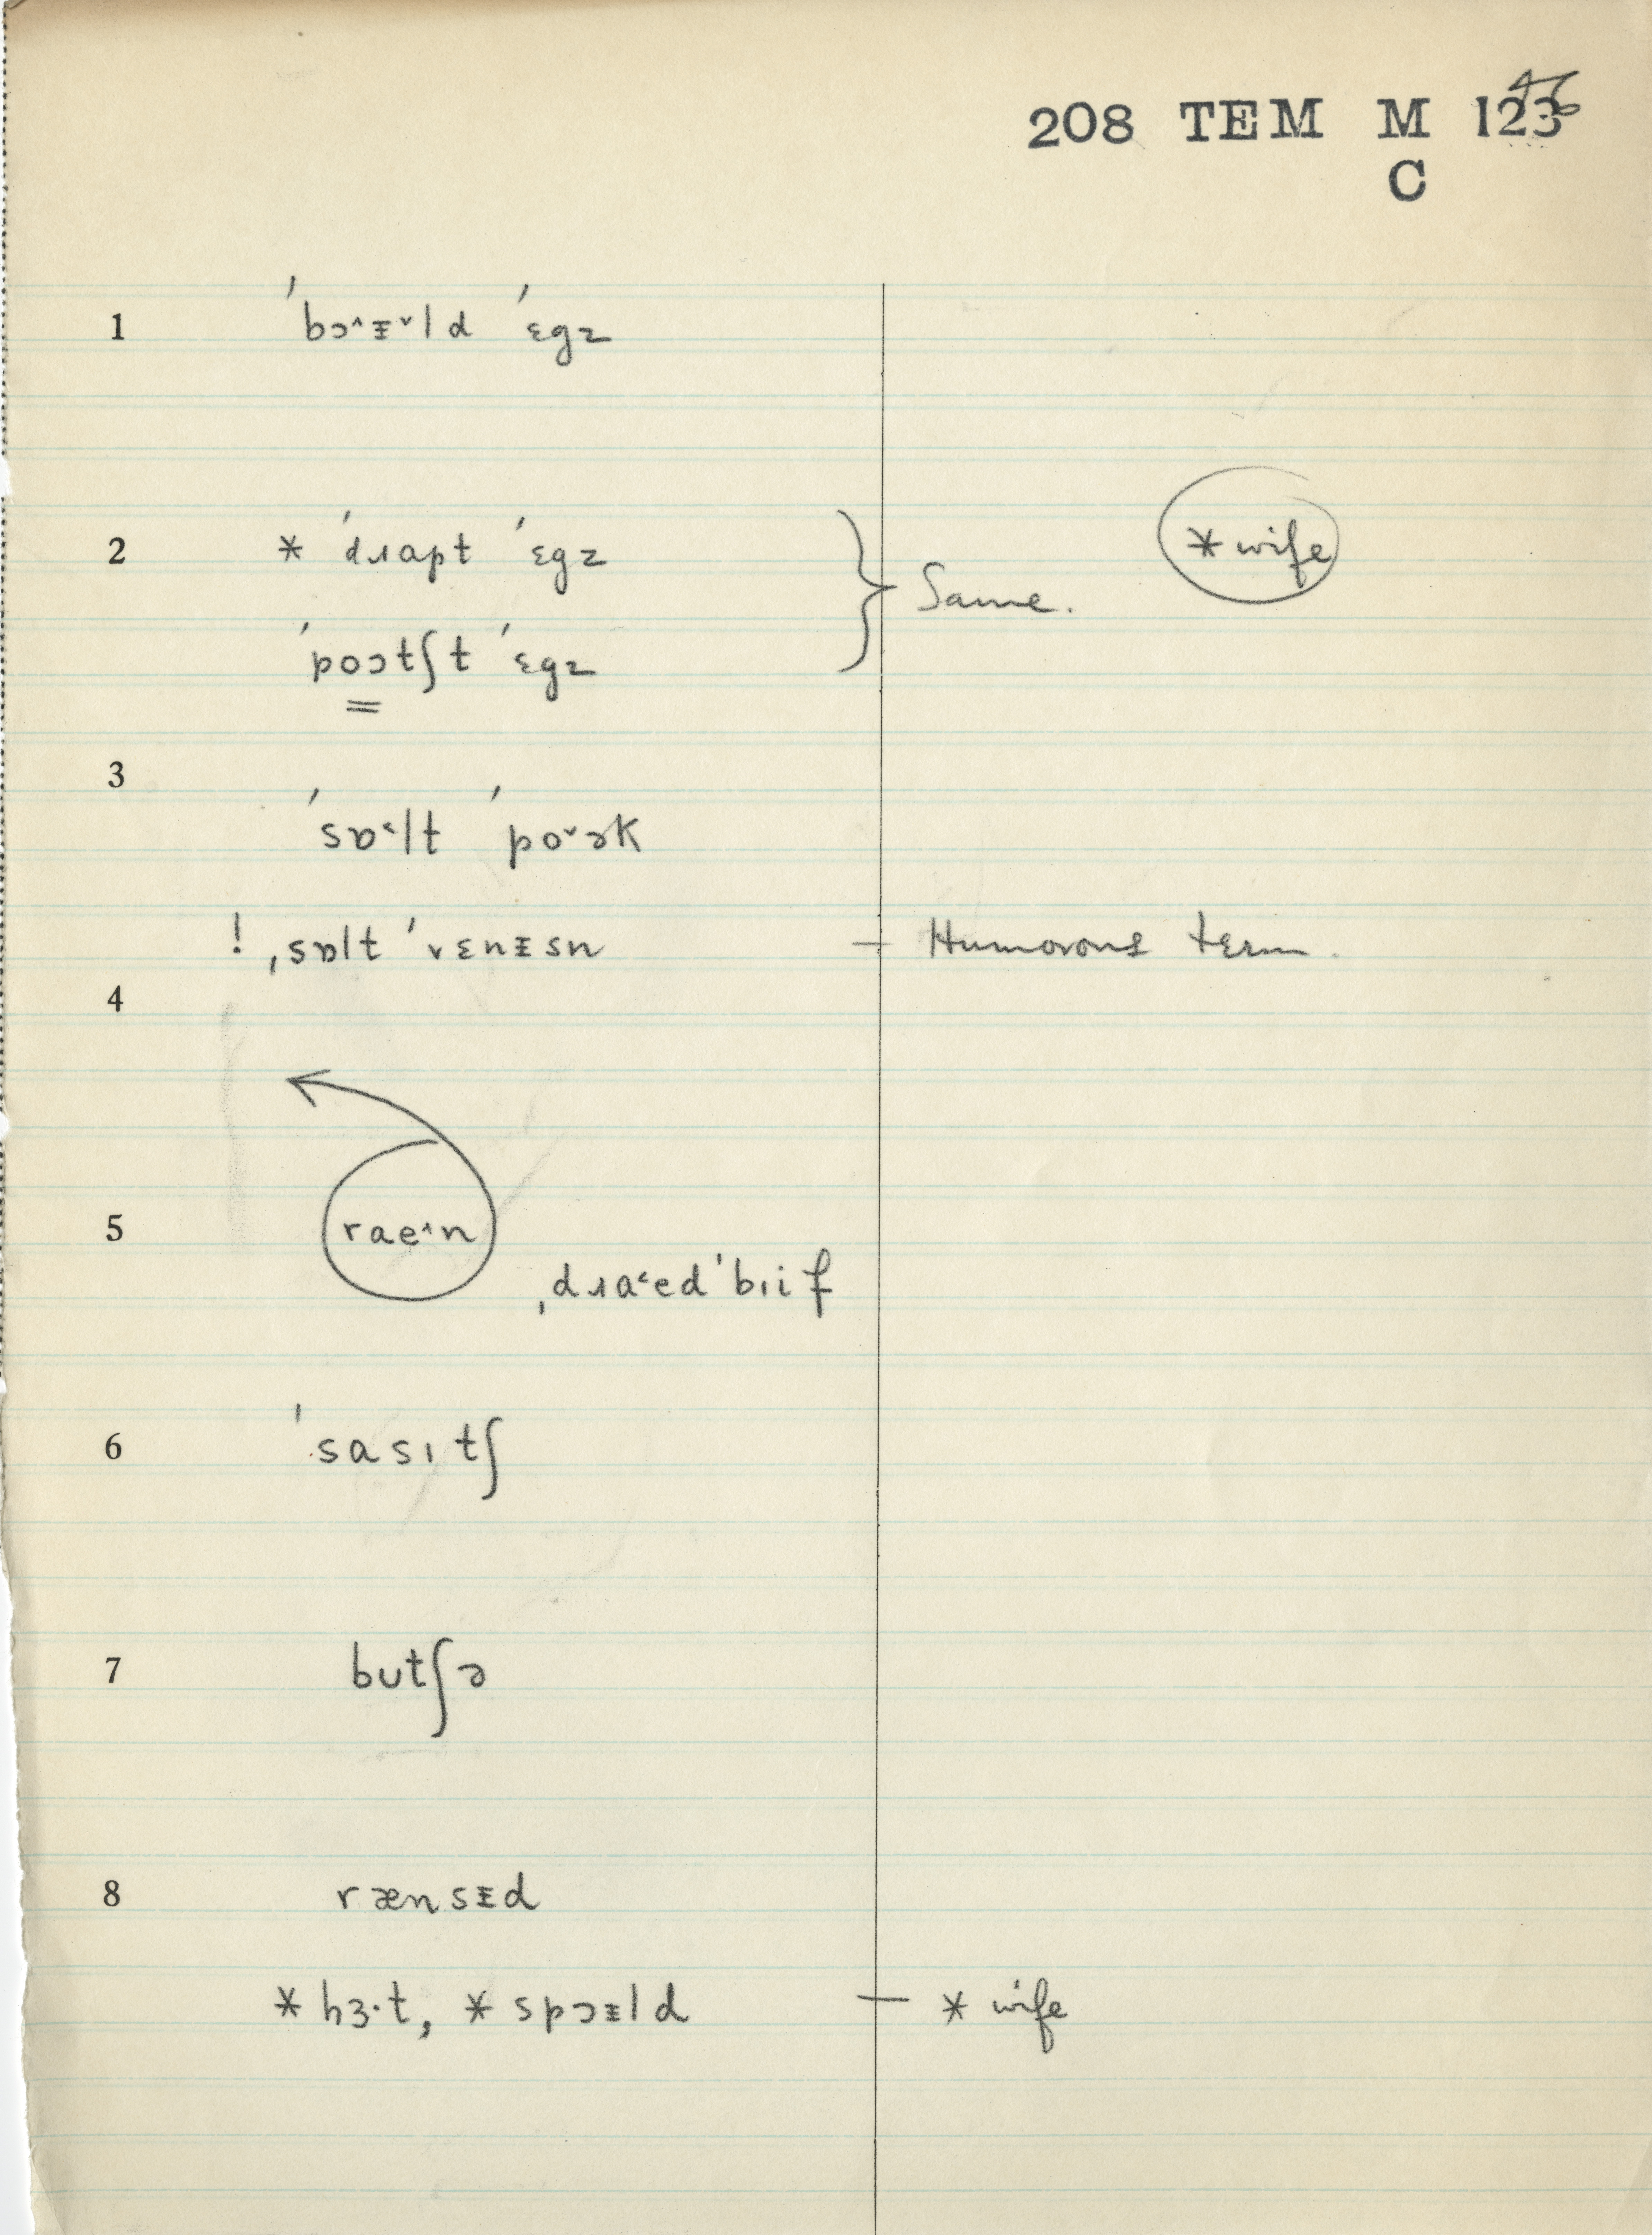 46
208 TEM M 123
C
1 ˈbɔ˄ᵻ˅ld ˈɛgz
2 * ˈdɹapt ˈɛgz } Same. *wife
ˈpoɔtʃt ˈɛgz
3 ˈsɒ˂lt ˈpo˅ək
! ˌsɒlt ˈvɛnᵻsn — Humorous term.
4
5 rae˄n ˌdɹa˂edˈbɪif
6 ˈsasɪtʃ
7 butʃə
8 rænsᵻd
* hɜ·t, * spɔᵻld — * wife